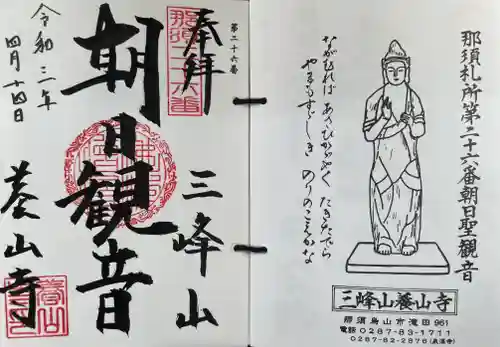 那須札所第二十六番朝日聖観音
ながむれば あさひかゞやく たきでら
やまもすゞしき のりのこゑかな
三峰山養山寺
那須烏山市滝田961
電話 0287-83-1171
0287-82-2976
第二十六番
奉拝
三峰山
朝日観音
養山寺
令和三年
四月十四日